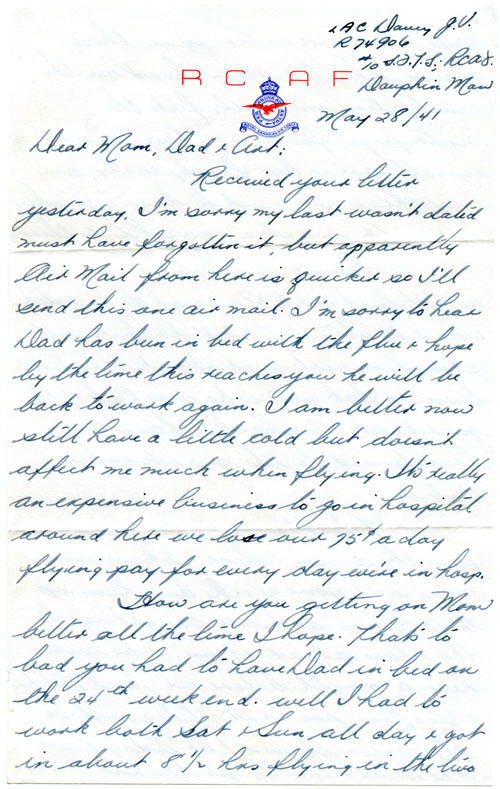 LAC Davey J.V.
R74906
#10 S.F.T.S. RCAF.
Dauphin Man
R C A F
May 28/41
Dear Mom, Dad & Art:
Received your letter
yesterday, I'm sorry my last wasn't dated
must have forgotten it, but apparently
Air Mail from here is quicker so I'll
send this one air mail. I'm sorry to hear
Dad has been in bed with the flu & hope
by the time this reaches you he will be
back to work again. I am better now
still have a little cold but doesn't
affect me much when flying. It's really
an expensive business to go in hospital
around here we lose our 75¢ a day
flying pay for every day we're in hosp.
How are you getting on Mom
better all the time I hope. That's to
bad you had to have Dad in bed on
the 24th week end. well I had to
work both Sat & Sun all day & got
in about 8 1/2 hrs flying in the two